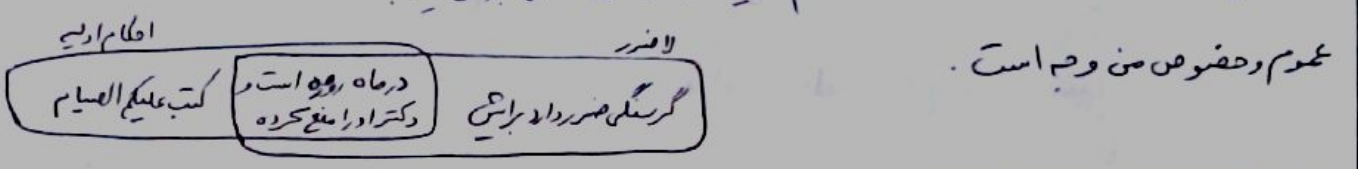 عموم و خصوص من وجه است.
لا ضرر
احکام اولیه
گرسنگی ضرر دارد برایش
در ماه روزه است و
دکتر او را منع کرده
کتب علیکم الصیام